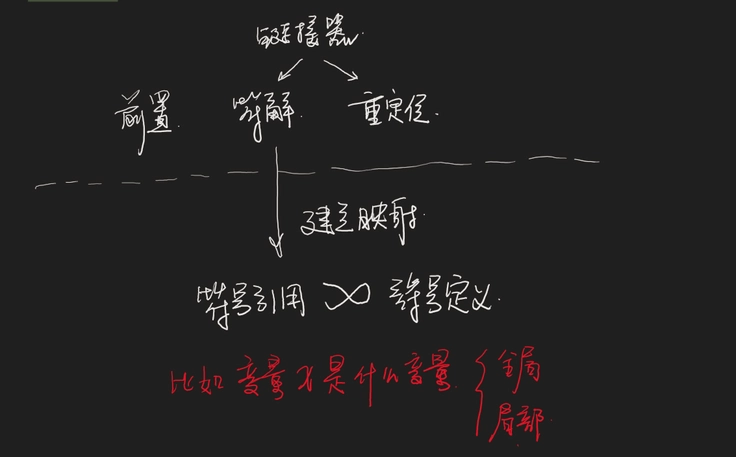 链接器
前置 符解 重定位
建立映射
符号引用 ∞ 符号定义
比如变量x是什么变量 { 全局
局部